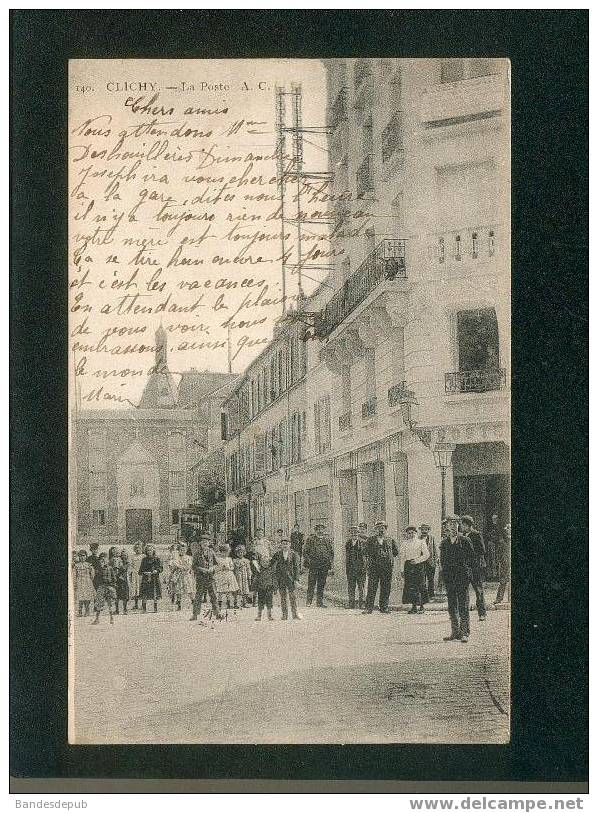 140. CLICHY. — La Poste A. C.
Chers amis
Nous attendons Mme
Deshouillères Dimanche
Joseph ira vous chercher
à la gare, dites nous l'heure
il n'y a toujours rien de nouveau
votre mère est toujours malade
Ça se tire encore 4 jours
et c'est les vacances.
En attendant le plaisir
de vous voir, nous
embrassons, ainsi que
le monde
Marie
Bandesdepub
www.delcampe.net